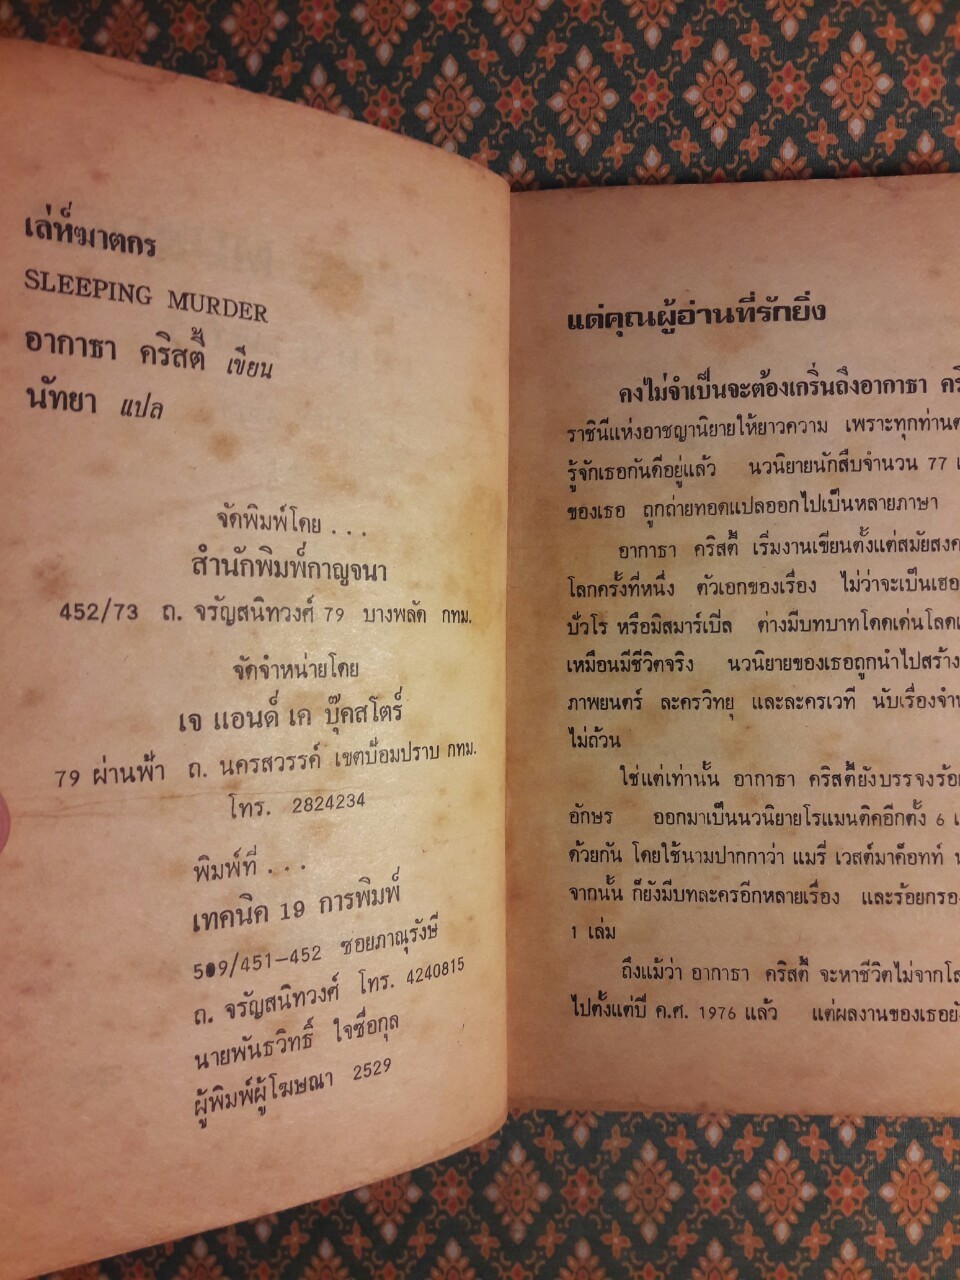 เล่ห์ฆาตกร
SLEEPING MURDER
อากาธา คริสตี้ เขียน
นัทยา แปล
จัดพิมพ์โดย . . .
สำนักพิมพ์กาญจนา
452/73 ถ. จรัญสนิทวงศ์ 79 บางพลัด กทม.
จัดจำหน่ายโดย
เจ แอนด์ เค บุ๊คสโตร์
79 ผ่านฟ้า ถ. นครสวรรค์ เขตป้อมปราบ กทม.
โทร. 2824234
พิมพ์ที่ . . .
เทคนิค 19 การพิมพ์
509/451-452 ซอยภาณุรังษี
ถ. จรัญสนิทวงศ์ โทร. 4240815
นายพันธวิทธิ์ ใจซื่อกุล
ผู้พิมพ์ผู้โฆษณา 2529
แด่คุณผู้อ่านที่รักยิ่ง
คงไม่จำเป็นจะต้องเกริ่นถึงอากาธา
ราชินีแห่งอาชญานิยายให้ยาวความ เพราะทุกท่าน
รู้จักเธอกันดีอยู่แล้ว นวนิยายนักสืบจำนวน 77
ของเธอ ถูกถ่ายทอดแปลออกไปเป็นหลายภาษา
อากาธา คริสตี้ เริ่มงานเขียนตั้งแต่สมัยสงค
โลกครั้งที่หนึ่ง ตัวเอกของเรื่อง ไม่ว่าจะเป็นเฮอ
ปัวโร หรือมิสมาร์เปิ้ล ต่างมีบทบาทโดดเด่นโลด
เหมือนมีชีวิตจริง นวนิยายของเธอถูกนำไปสร้าง
ภาพยนตร์ ละครวิทยุ และละครเวที นับเรื่องจำ
ไม่ถ้วน
ใช่แต่เท่านั้น อากาธา คริสตี้ยังบรรจงร้อย
อักษร ออกมาเป็นนวนิยายโรแมนติคอีกตั้ง 6
ด้วยกัน โดยใช้นามปากกาว่า แมรี่ เวสต์มาค็อทท์
จากนั้น ก็ยังมีบทละครอีกหลายเรื่อง และร้อยกรอง
1 เล่ม
ถึงแม้ว่า อากาธา คริสตี้ จะหาชีวิตไม่จากโล
ไปตั้งแต่ปี ค.ศ. 1976 แล้ว แต่ผลงานของเธอยั